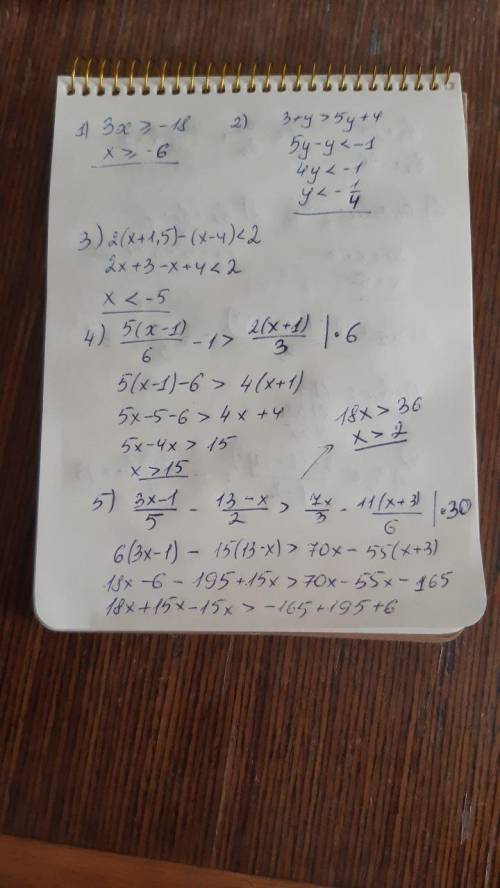 1) 3x ≥ -18
x ≥ -6
2) 3+y > 5y+4
5y-y < -1
4y < -1
y < -1/4
3) 2(x+1,5)-(x-4)<2
2x+3-x+4<2
x < -5
4) 5(x-1)/6 - 1 > 2(x+1)/3 | · 6
5(x-1)-6 > 4(x+1)
5x-5-6 > 4x+4
5x-4x > 15
x > 15
5) 3x-1/5 - 13-x/2 > 7x/3 - 11(x+3)/6 | · 30
6(3x-1) - 15(13-x) > 70x - 55(x+3)
18x-6-195+15x > 70x-55x-165
18x+15x-15x > -165+195+6
18x > 36
x > 2